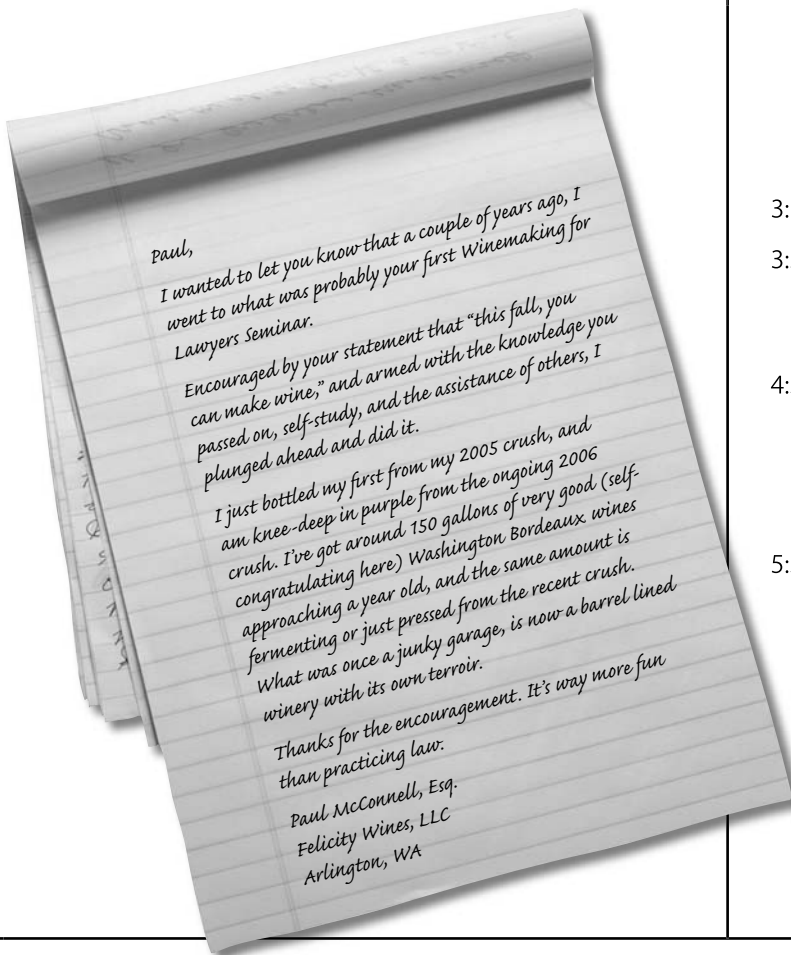 Paul,
I wanted to let you know that a couple of years ago, I
went to what was probably your first Winemaking for
Lawyers Seminar.
Encouraged by your statement that “this fall, you
can make wine,” and armed with the knowledge you
passed on, self-study, and the assistance of others, I
plunged ahead and did it.
I just bottled my first from my 2005 crush, and
am knee-deep in purple from the ongoing 2006
crush. I’ve got around 150 gallons of very good (self-
congratulating here) Washington Bordeaux wines
approaching a year old, and the same amount is
fermenting or just pressed from the recent crush.
What was once a junky garage, is now a barrel lined
winery with its own terroir.
Thanks for the encouragement. It’s way more fun
than practicing law.
Paul McConnell, Esq.
Felicity Wines, LLC
Arlington, WA
3:
3:
4:
5: